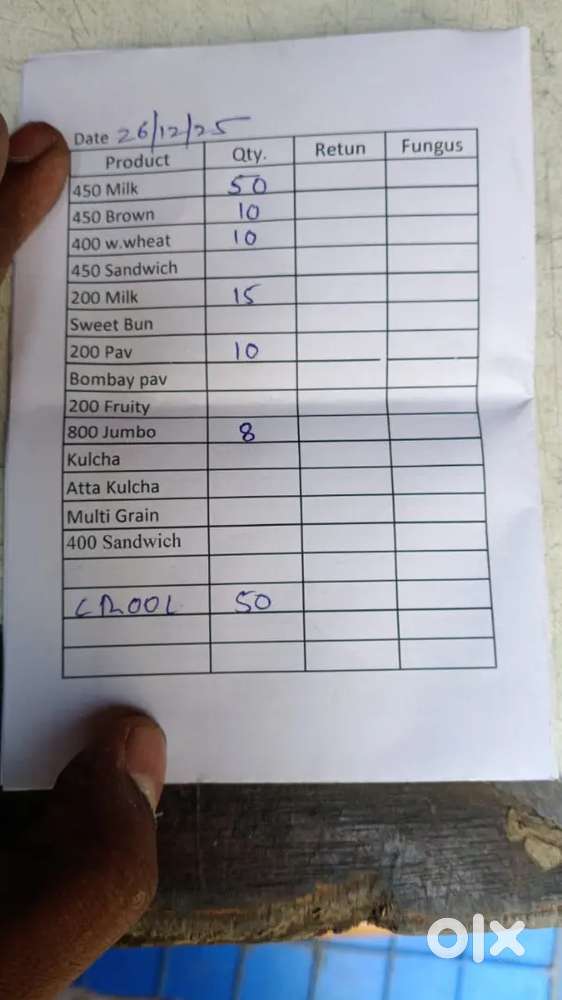 Date 26/12/25
Product Qty. Retun Fungus
450 Milk 50
450 Brown 10
400 w.wheat 10
450 Sandwich
200 Milk 15
Sweet Bun
200 Pav 10
Bombay pav
200 Fruity
800 Jumbo 8
Kulcha
Atta Kulcha
Multi Grain
400 Sandwich
50
olx